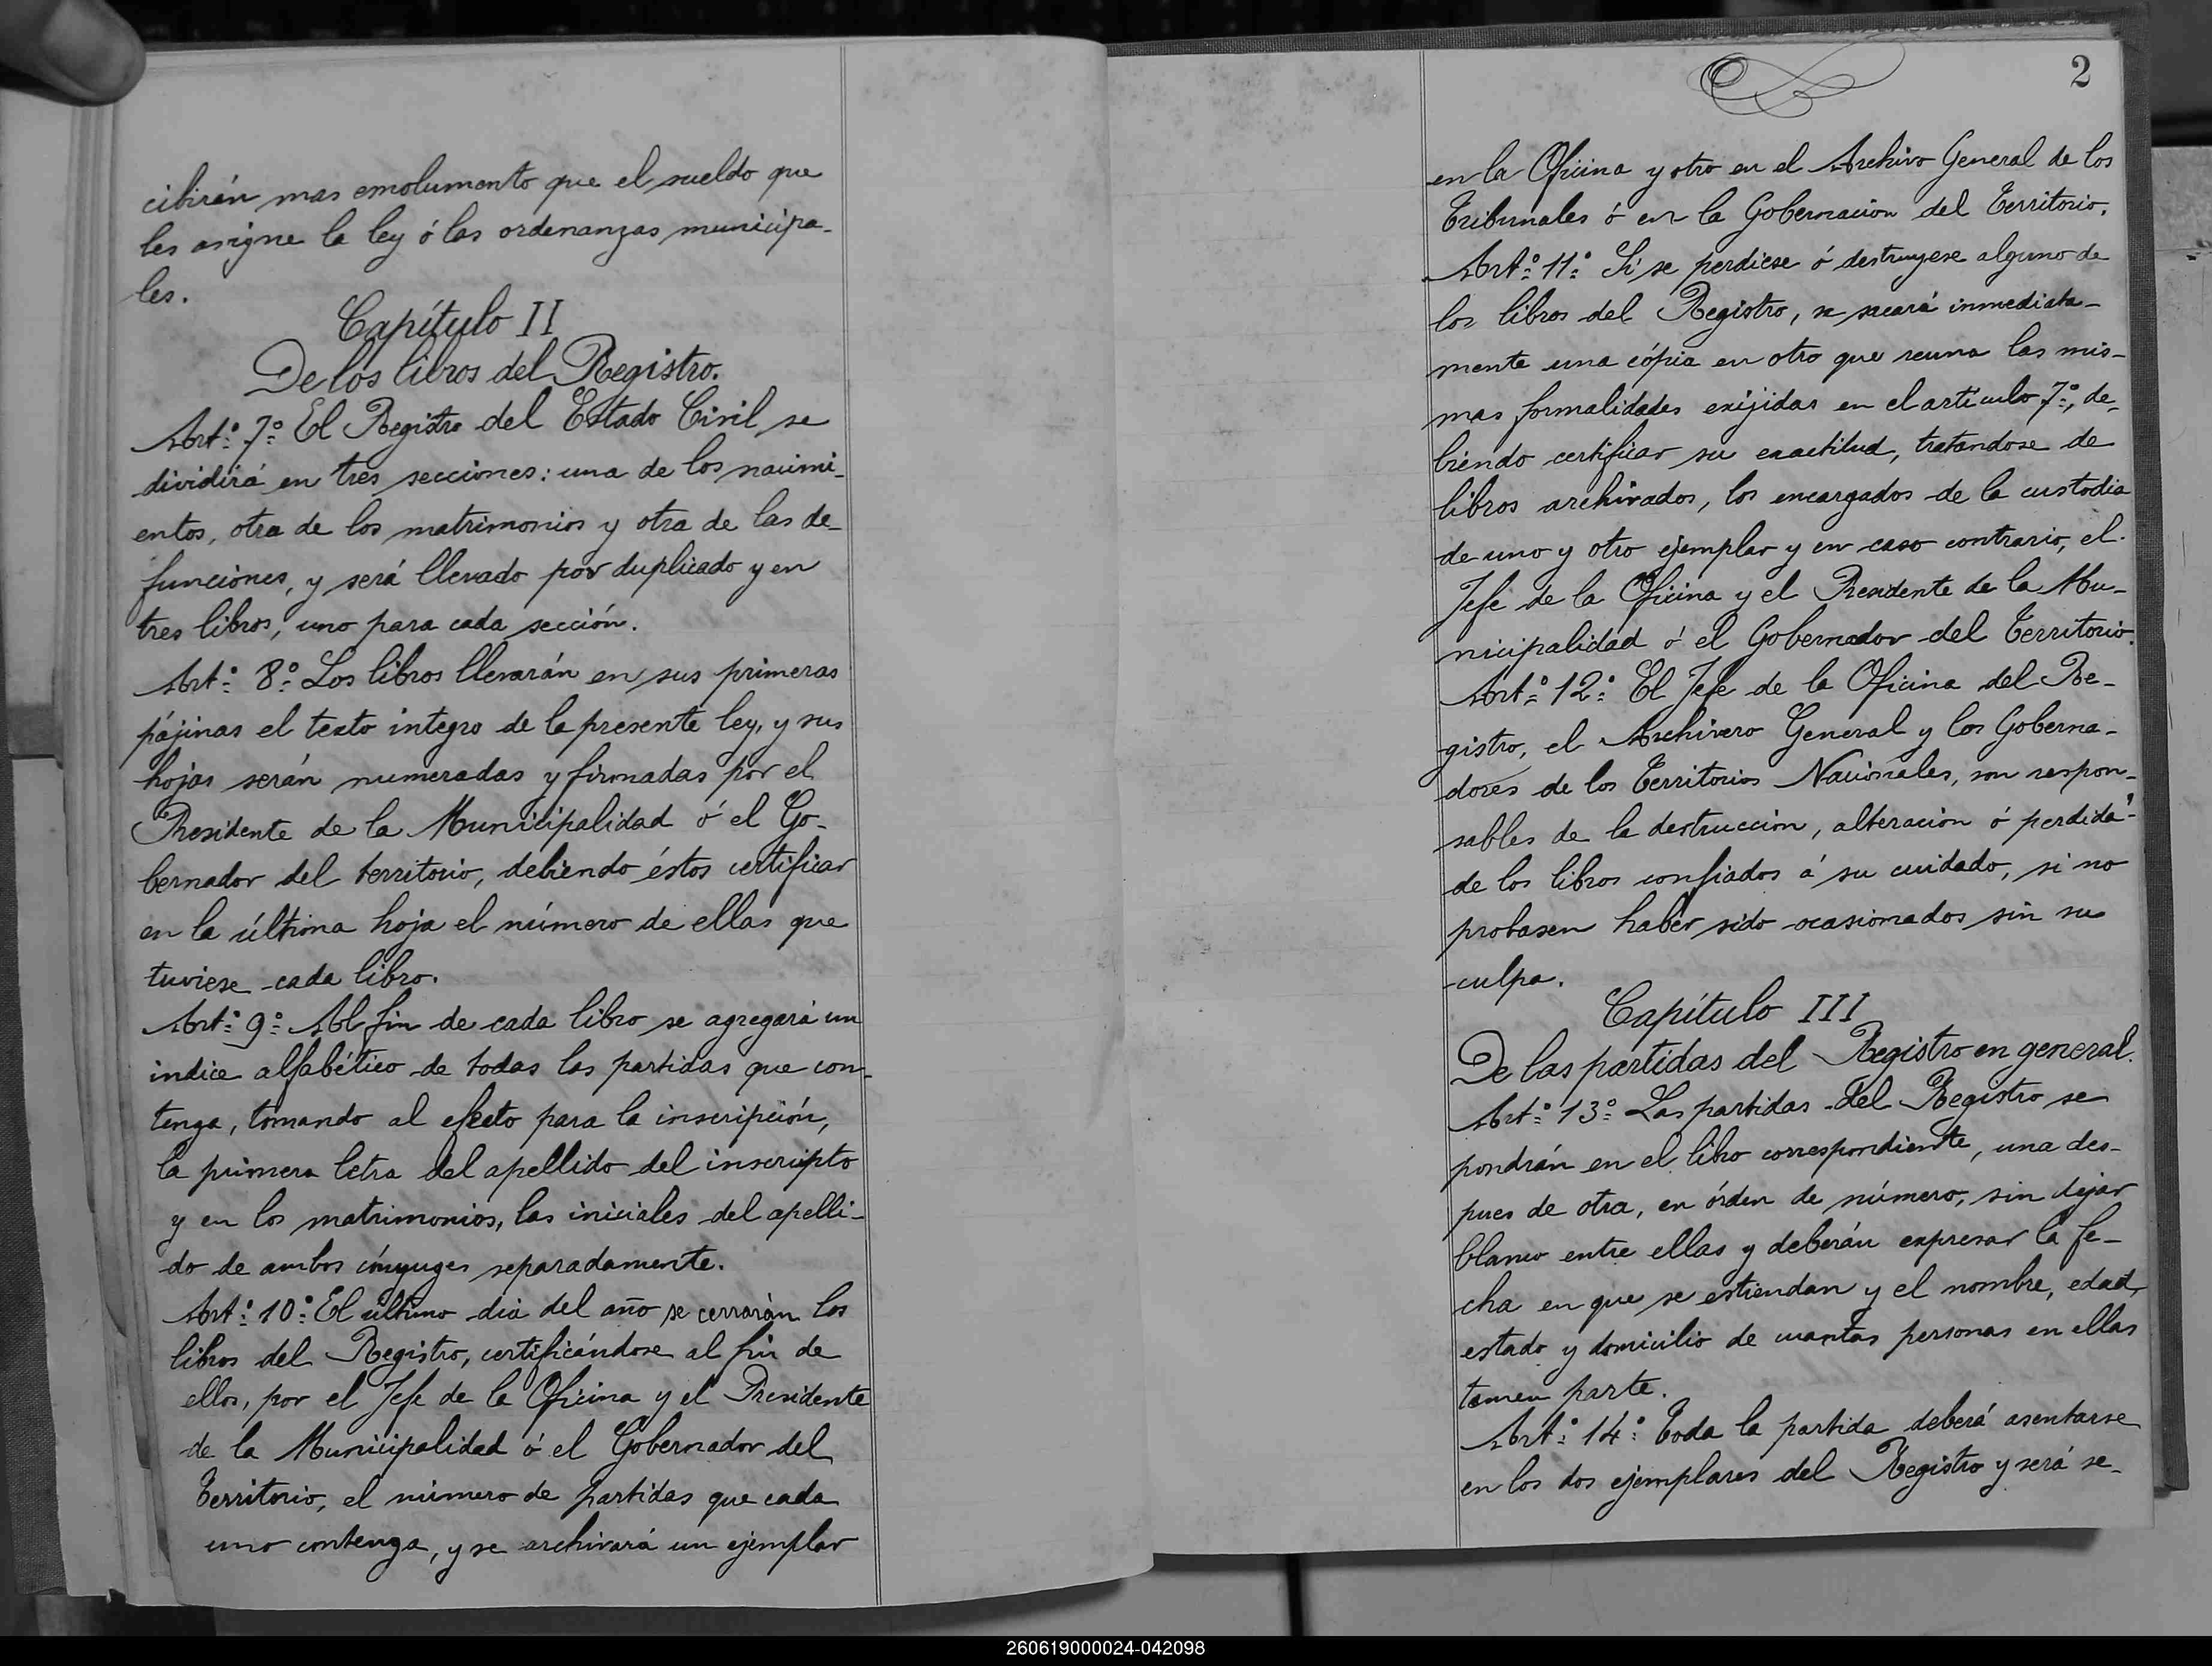 cibirán mas emolumento que el sueldo que
les asigne la ley ó las ordenanzas municipa-
les.
Capítulo II
De los libros del Registro.
Art.º 7.º El Registro del Estado Civil se
dividirá en tres secciones: una de los nacimi-
entos, otra de los matrimonios y otra de las de-
funciones, y será llevado por duplicado y en
tres libros, uno para cada sección.
Art.º 8.º Los libros llevarán en sus primeras
pájinas el texto integro de la presente ley, y sus
hojas serán numeradas y firmadas por el
Presidente de la Municipalidad ó el Go-
bernador del territorio, debiendo éstos certificar
en la última hoja el número de ellas que
tuviese cada libro.
Art.º 9.º Al fin de cada libro se agregará un
indice alfabético de todas las partidas que con-
tenga, tomando al efecto para la inscripción,
la primera letra del apellido del inscripto
y en los matrimonios, las iniciales del apelli-
do de ambos cónyuges separadamente.
Art.º 10.º El último dia del año se cerrarán los
libros del Registro, certificándose al fin de
ellos, por el Jefe de la Oficina y el Presidente
de la Municipalidad ó el Gobernador del
Territorio, el número de partidas que cada
uno contenga, y se archivará un ejemplar
2
en la Oficina y otro en el Archivo General de los
Tribunales ó en la Gobernación del Territorio.
Art.º 11.º Si se perdiese ó destruyese alguno de
los libros del Registro, se sacará inmediata-
mente una cópia en otro que reuna las mis-
mas formalidades exijidas en el artículo 7.º, de-
biendo certificar su exactitud, tratandose de
libros archivados, los encargados de la custodia
de uno y otro ejemplar y en caso contrario, el
Jefe de la Oficina y el Presidente de la Mu-
nicipalidad ó el Gobernador del Territorio.
Art.º 12.º El Jefe de la Oficina del Re-
gistro, el Archivero General y los Goberna-
dores de los Territorios Nacionales, son respon-
sables de la destrucción, alteración ó perdida
de los libros confiados á su cuidado, si no
probasen haber sido ocasionados sin su
culpa.
Capítulo III
De las partidas del Registro en general.
Art.º 13.º Las partidas del Registro se
pondrán en el libro correspondiente, una des-
pues de otra, en órden de número, sin dejar
blanco entre ellas y deberán expresar la fe-
cha en que se estiendan y el nombre, edad,
estado y domicilio de cuantas personas en ellas
tomen parte.
Art.º 14.º Toda la partida deberá asentarse
en los dos ejemplares del Registro y será se-
260619000024-042098